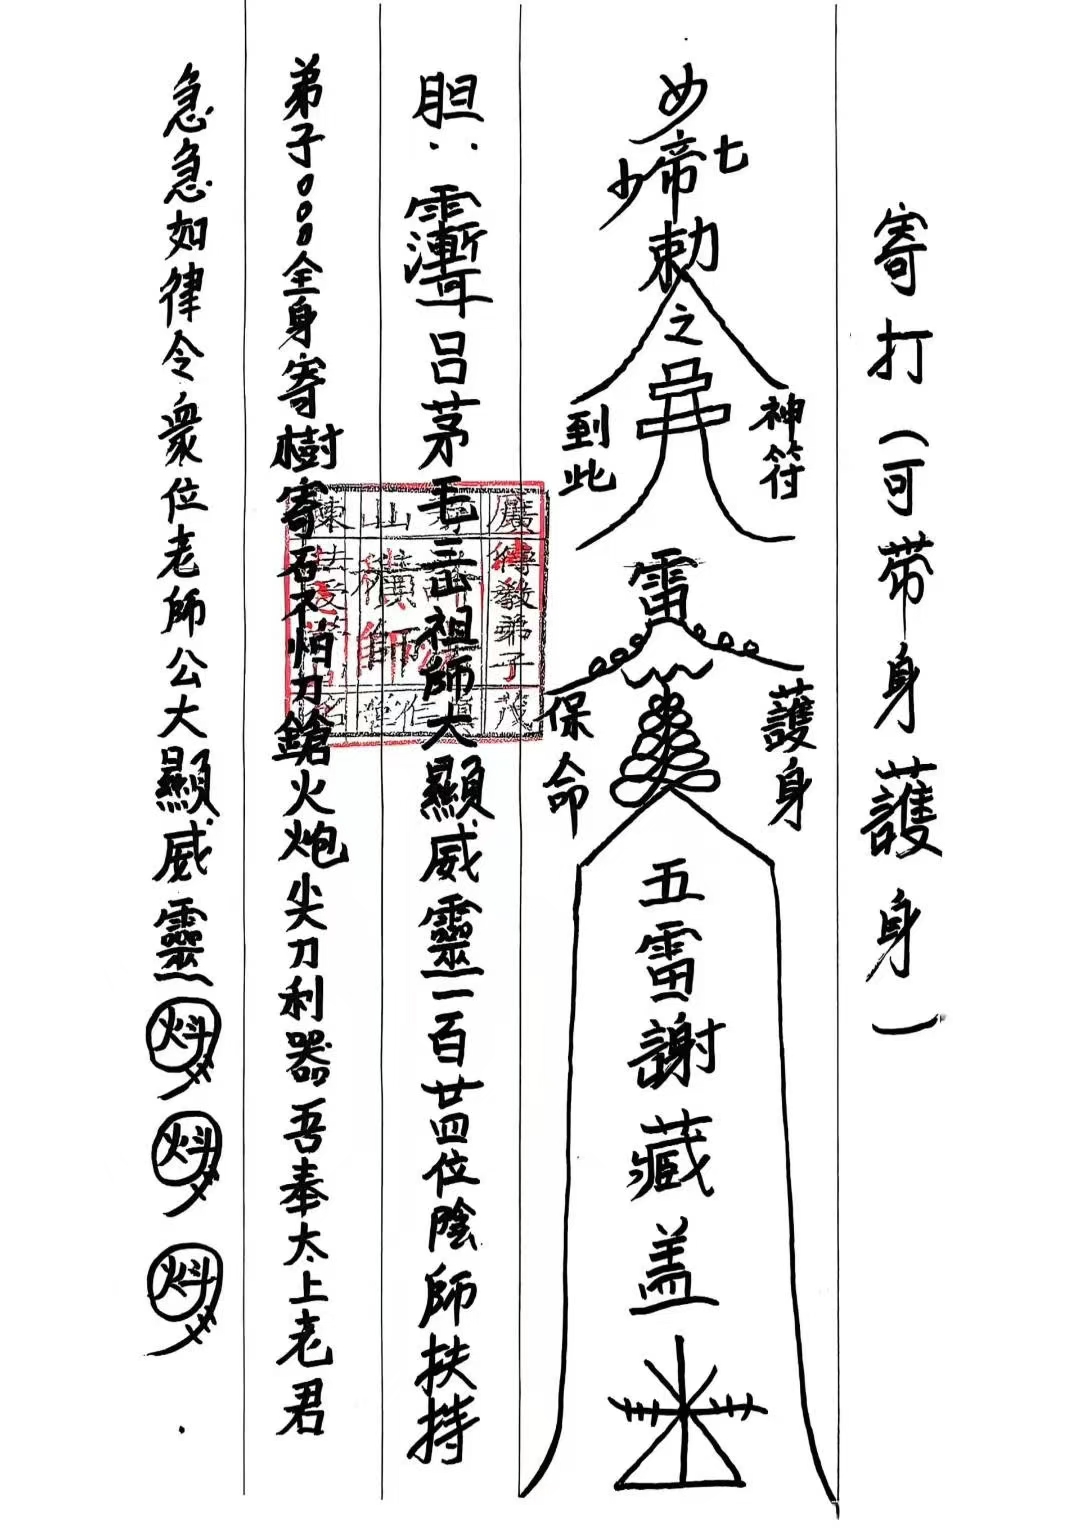 寄打（可带身護身）
七
帝
少
勅
之
神符
到此
雷
護身
保命
五雷謝藏盖
胆：
吕茅毛三山祖師大顯威靈一百廿四位陰師扶持
弟子〇〇〇全身寄樹寄石不怕刀鎗火炮尖刀利器吾奉太上老君
急急如律令衆位老師公大顯威靈
廣傳教弟子茂